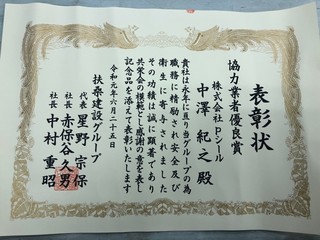 表彰状
協力業者優良賞
株式会社pシール
中澤紀之殿
貴社は永年に亘り当グループの為
職務に精励され安全及び
衛生に寄与されました
その功績は誠に顕著であり
共栄会の模範とし感謝の意を表し
記念品を添えて表彰いたします
令和元年六月二十五日
扶桑建設グループ
代表 星野宗保
社長 赤保谷久男
社長 中村重昭